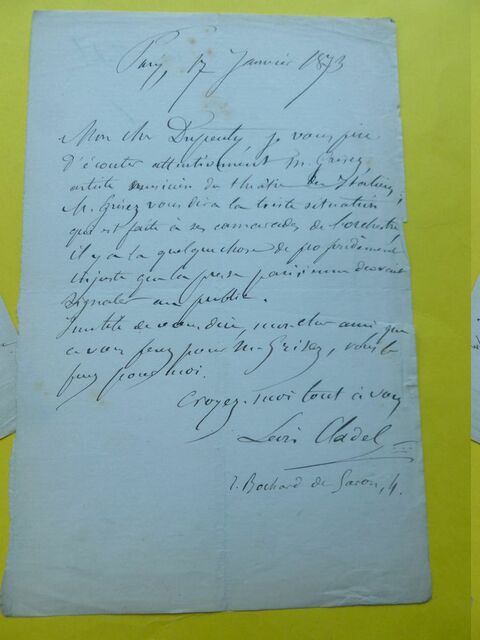 Paris, 17 Janvier 1873
Mon cher Dupeuty, je vous prie
d'écouter attentivement M. Grisez
artiste musicien du théâtre des Italiens;
M. Grisez vous dira la triste situation
qui est faite à ses camarades de l'orchestre
il y a là quelque chose de profondément
injuste que la presse parisienne devrait
signaler au public.
Inutile de vous dire, mon cher ami que
ce vous ferez pour M. Grisez, vous le
ferez pour moi.
Croyez-moi tout à vous
Léon Cladel
r. Bochard de Saron, 4.